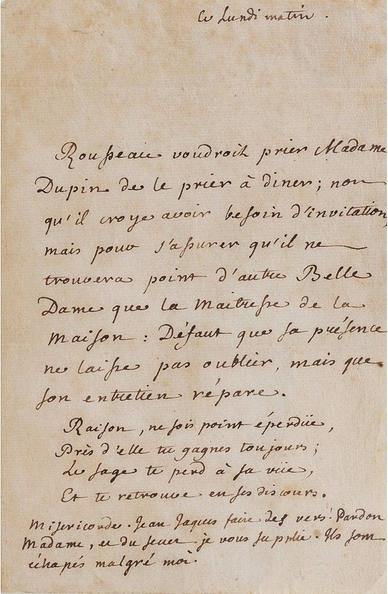 Ce Lundi matin.
Rousseau voudroit prier Madame
Dupin de le prier à diner ; non
qu'il croye avoir besoin d'invitation,
mais pour s'assurer qu'il ne
trouvera point d'autre Belle
Dame que la Maitresse de la
maison : Défaut que sa présence
ne laisse pas oublier, mais que
son entretien répare.
Raison, ne sois point éperdüe,
Près d'elle tu gagnes toujours ;
Le sage te perd à sa vüe,
Et te retrouve en ses discours.
Misericorde. Jean Jaques faire des vers! Pardon
Madame, et du secret je vous suplie. Ils sont
échapés malgré moi.